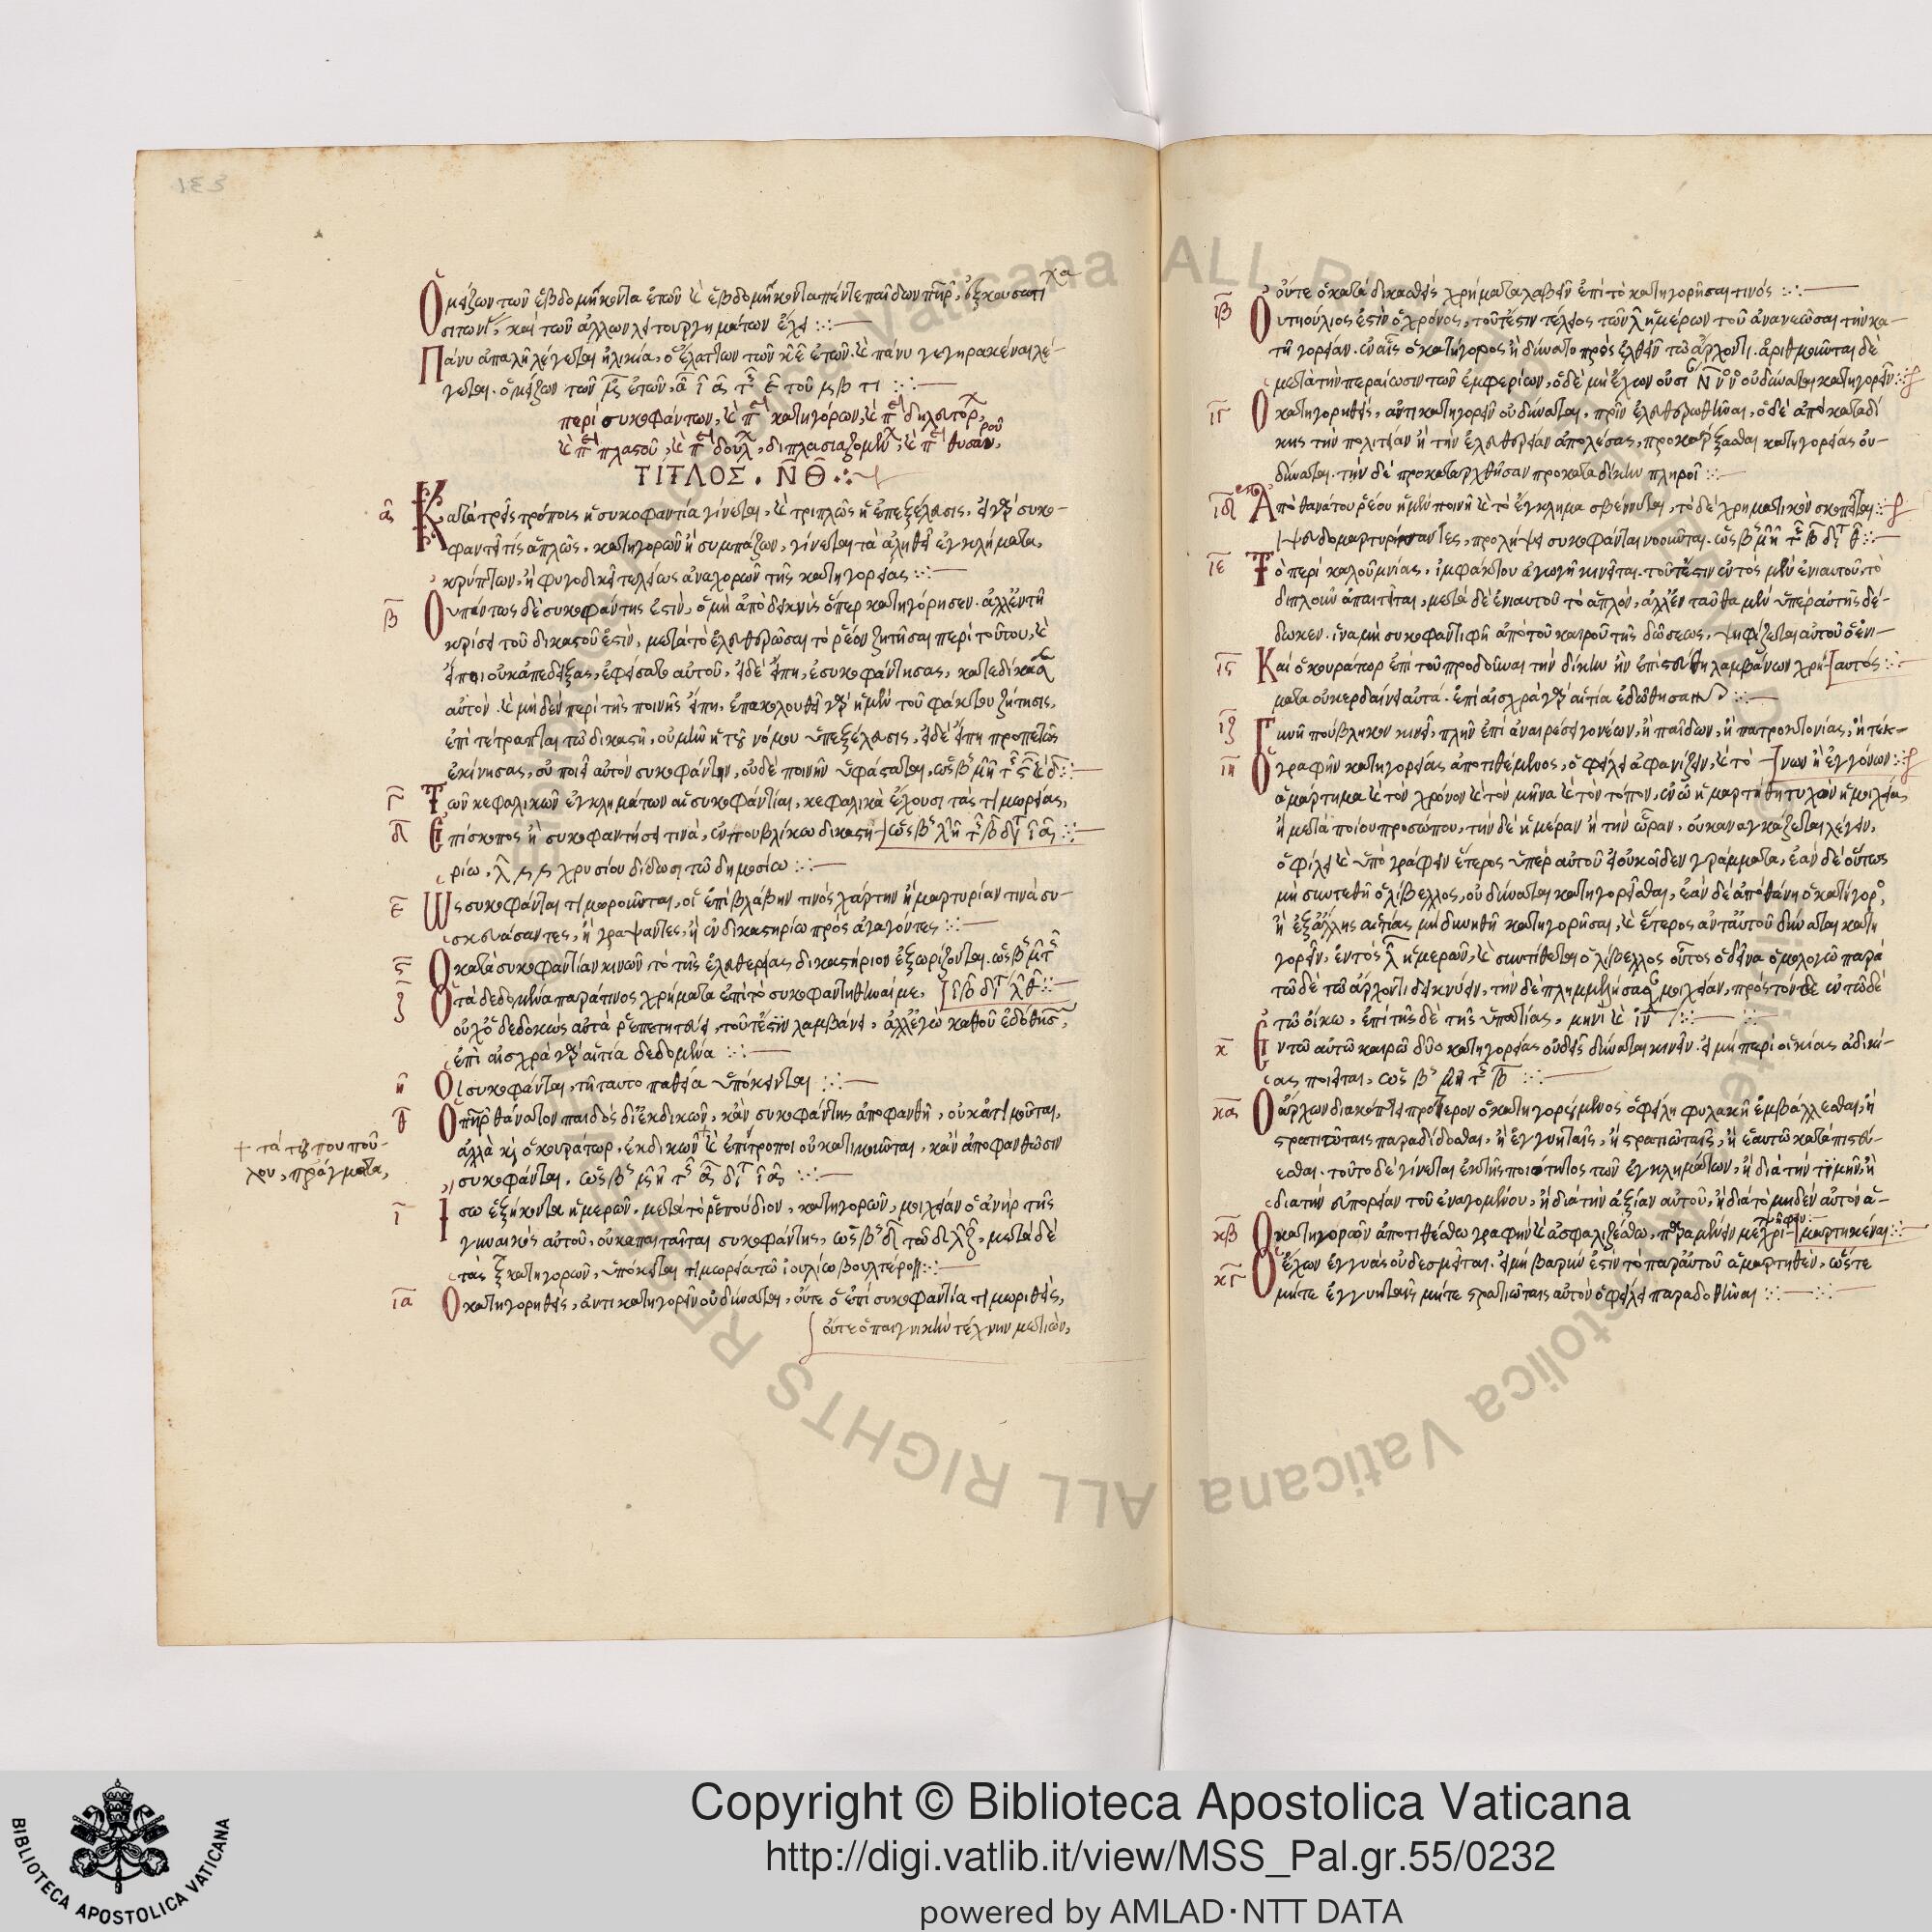 Ὁ μείζων τῶν ἑβδομήκοντα ἐτῶν καὶ ἑβδομηκονταπέντε παίδων πηρ,
σιτωνί, καὶ τῶν ἄλλων λειτουργημάτων ἔχει
Πάνυ ἁπαλὴ λέγεται ἡλικία, ὁ ἐλάττων τῶν κε ἐτῶν. καὶ πάνυ γεγηρακέναι λέ-
γεται. ὁ μείζων τῶν ἐτῶν,
περὶ συκοφάντων, καὶ π κατηγόρων, καὶ π δηλατόρ,
καὶ π πλαστοῦ, καὶ π δούλ, διπλασιαζομεν, καὶ π θυσαυ,
ΤΙΤΛΟΣ. ΝΘ
α
Κατὰ τρεῖς τρόπους ἡ συκοφαντία γίνεται, καὶ τριπλῶς ἡ ἐπεξέλευσις, εἰ γὰρ συκο-
φαντεῖ τίς ἁπλῶς. κατηγορῶν ἢ συμπαίζων, γίνεται τὰ ἀληθεῖ ἐγκλήματα,
κρύπτων, ἢ φυγοδικεῖ τελείως ἀναχορῶν τῆς κατηγορείας
β
Οὐ πάντως δὲ συκοφάντης ἐστὶν, ὁ μὴ ἀποδεικνὺς ὅπερ κατηγόρησεν. ἀλλ' ἐν τῆ
κρίσει τοῦ δικαστοῦ ἐστὶν, μετὰ τὸ ἐλευθερῶσαι τὸ ῥέον ζητῆσαι περὶ τούτου, καὶ
εἴποι οὐκ ἀπέδειξας, ἐφείσατο αὐτοῦ, εἰ δὲ εἴπη, ἐσυκοφάντησας, κατεδίκασ
αὐτὸν. καὶ μηδὲν περὶ τῆς ποινῆς εἴπη. ἐπακολουθεῖ γὰρ ἡ μὲν τοῦ φάκτου ζήτησις,
ἐπιτέτραπται τῶ δικαστῆ, οὐ μὴν ἡ τοῦ νόμου ὑπεξέλευσις, εἰ δὲ εἴπη προπετῶς
ἐκίνησας, οὐ ποιεῖ αὐτὸν συκοφάντην, οὐδὲ ποινὴν ὑφίσταται,
γ
Τῶν κεφαλικῶν ἐγκλημάτων αἱ συκοφαντίαι, κεφαλικὰ ἔχουσι τὰς τιμωρείας,
δ
Ἐπίσκοπος ἢ συκοφαντήσει τινὰ, ἐν πουβλίκω δικαστη-
ρίω, λ χρυσίου δίδωσι τῶ δημοσίω
ε
Ὡς συκοφάνται τιμωροῦνται, οἱ ἐπὶ βλάβην τινὸς χάρτην ἢ μαρτυρίαν τινὰ συ-
σκευάσαντες, ἢ γράψαντες, ἢ ἐν δικαστηρίω προσαγαγόντες
ς
Ὁ κατὰ συκοφαντίαν κινῶν τὸ τῆς ἐλευθερίας δικαστήριον ἐξωρίζονται.
ζ
Ὁ τὰ δεδομένα παρά τινος χρήματα ἐπὶ τὸ συκοφαντηθῆναί με,
οὐχ ὁ δεδοκὼς αὐτὰ ῥεπετητεύει, τουτέστιν λαμβάνει, ἀλλ' ἐγὼ καθ' οὗ ἐδόθησ,
ἐπὶ αἰσχρὰ γὰρ αἰτία δεδομένα
η
Οἱ συκοφάνται, τῆ ταυτοπαθεία ὑπόκεινται
θ
Ὁ πηρ θάνατον παιδὸς διεκδικῶν, κἂν συκοφάντης ἀποφανθῆ, οὐκ ἀτιμοῦται,
+ τὰ τοῦ που ποῦ-
λου, πράγματα,
ἀλλὰ καὶ ὁ κουράτωρ, ἐκδικῶν καὶ ἐπίτροποι οὐκ ἀτιμοῦνται, κἂν ἀποφανθῶσιν
συκοφάνται.
ι
Ἴσω ἑξήκοντα ἡμερῶν. μετὰ τὸ ῥεπούδιον, κατηγορῶν, μοιχείαν ὁ ἀνὴρ τῆς
γυναικὸς αὐτοῦ, οὐκ ἀπαιτεῖται συκοφάντης, μετὰ δὲ
τὰς ξ κατηγορῶν, ὑπόκειται τιμωρεία τῶ ἰουλίω
ια
Ὁ κατηγορηθεὶς, ἀντικατηγορεῖν οὐ δύναται, οὔτε ὁ ἐπὶ συκοφαντία τιμωριθεὶς,
οὔτε ὁ παιγνικὴν τέχνην μετιὼν,
οὔτε ὁ καταδικασθεὶς χρήματα λαβεῖν ἐπὶ τὸ κατηγορῆσαι τινός
ιβ
Ὁ υτιούλιος ἐστὶν ὁ χρόνος, τουτέστιν τέλος τῶν λ ἡμέρων τοῦ ἀνανεῶσαι τὴν κα-
τηγορείαν. ἐν αἷς ὁ κατήγορος ἠδύνατο προσελθεῖν τῶ ἄρχοντι. ἀριθμοῦνται δὲ
μετὰ τὴν περαίωσιν τῶν ἐμφερίων, ὁ δὲ μὴ ἔχων οὐσι Ν οὐ δύναται κατηγορεῖν
ιγ
Ὁ κατηγορηθεὶς, ἀντικατηγορεῖν οὐ δύναται, πρὶν ἐλευθερωθῆναι, ὁ δὲ ἀπὸ καταδί
κης τὴν πολιτείαν ἢ τὴν ἐλευθερίαν ἀπολέσας, προκατάρξασθαι κατηγορείας οὐ-
δύναται. τὴν δὲ προκαταρχθεῖσαν προκαταδίκην πληροῖ
ιδ
Ἀπὸ θανάτου ῥέου ἡ μὲν ποινὴ καὶ τὸ ἔγκλημα σβέννυται, τὸ δὲ χρηματικὸν σκοπεῖται
ψευδομαρτυρήσαντες, προλήψει συκοφάνται νοοῦνται.
ιε
Τὸ περὶ καλουμνίας. ἰμφάκτου ἀγωγὴ κινεῖται. τουτέστιν ἐντὸς μὲν ἐνιαυτοῦ, τὸ
διπλοῦν ἀπαιτεῖται, μετὰ δὲ ἐνιαυτοῦ τὸ ἁπλὸν, ἀλλ' ἐνταῦθα μὲν ὑπὲρ αὐτῆς δέ-
δωκεν. ἵνα μὴ συκοφαντιφῆ ἀπὸ τοῦ καιροῦ τῆς δώσεως, ψηφίζεται αὐτοῦ ὁ ἐνι-
αυτός
ις
Καὶ ὁ κουράτορ ἐπὶ τοῦ προδοῦναι τὴν δίκην ἣν ἐπιστεύθη λαμβάνων χρή-
ματα οὐ κερδαίνει αὐτά. ἐπὶ αἰσχρὰ γὰρ αἰτία ἐδώθησαν
ιζ
Γυνὴ πούβλικον κινεῖ, πλὴν ἐπὶ ἀναιρέσει γονέων, ἢ παίδων, ἢ πατροκτονίας, ἢ τέκ-
νων ἢ ἐγγόνων
ιη
Ὁ γραφὴν κατηγορείας ἀποτιθέμενος, ὀφείλει ἀφανίζειν, καὶ τὸ
ἁμάρτημα καὶ τὸν χρόνον καὶ τὸν μῆνα καὶ τὸν τόπον, ἐν ᾧ ἡμαρτήθη τυχὸν ἡ μοιχεία,
ἢ μετὰ ποίου προσώπου, τὴν δὲ ἡμέραν ἢ τὴν ὥραν, οὐκ ἀναγκάζεται λέγειν,
ὀφίλει καὶ ὑπογράφειν ἕτερος ὑπὲρ αὐτοῦ εἰ οὐκ οἶδεν γράμματα, ἐὰν δὲ οὕτως
μὴ συντεθῆ ὁ λίβελλος, οὐ δύναται κατηγορεῖσθαι, ἐὰν δὲ ἀποθάνη ὁ κατήγορο,
ἢ ἐξ ἄλλης αἰτίας μὴ δυνηθῆ κατηγορῆσαι, καὶ ἕτερος ἀντ' αὐτοῦ δύναται κατη
γορεῖν, ἐντὸς λ ἡμερῶν, καὶ συντίθεται ὁ λίβελλος οὗτος ὁ δεῖνα ὁμολογῶ παρὰ
τῶδε τῶ ἄρχοντι δεικνύειν, τὴν δὲ πλημμελήσασ μοιχείαν, πρὸς τόνδε ἐν τῶδε
τῶ οἴκω, ἐπὶ τῆσδε τῆς ὑπατίας, μηνὶ
κ
Ἐν τῶ αὐτῶ καιρῶ δύο κατηγορείας οὐδεὶς δύναται κινεῖν. εἰ μὴ περὶ οἰκείας ἀδικί-
ας ποιεῖται,
κα
Ὁ ἄρχων διακόπτει πρότερον ὁ κατηγορούμενος ὀφείλη φυλακῆ ἐμβάλλεσθαι, ἢ
στρατιώταις παραδίδοσθαι, ἢ ἐγγυηταῖς, ἢ στρατιώταις, ἢ ἑαυτῶ καταπιστεύ-
εσθαι. τοῦτο δὲ γίνεται ἐκ τῆς ποιότητος τῶν ἐγκλημάτων, ἢ διὰ τὴν τιμὴν, ἢ
διὰ τὴν εὐπορείαν τοῦ ἐναγομένου, ἢ διὰ τὴν ἀξίαν αὐτοῦ, ἢ διὰ τὸ μηδὲν αὐτὸν ἁ-
μαρτηκέναι
κβ
Ὁ κατηγορῶν ἀποτιθέσθω γραφὴν καὶ ἀσφαλιζέσθω, παραμένειν μέχρι
κγ
Ὁ ἔχων ἐγγυὰς οὐ δεσμεῖται. εἰ μὴ βαρύν ἐστιν τὸ παρ' αὐτοῦ ἁμαρτηθὲν, ὥστε
μήτε ἐγγυηταῖς μήτε στρατιώταις αὐτὸν ὀφείλει παραδοθῆναι
ALL RIGHTS RESERVED
Biblioteca Apostolica Vaticana
BIBLIOTECA APOSTOLICA VATICANA
Copyright © Biblioteca Apostolica Vaticana
http://digi.vatlib.it/view/MSS_Pal.gr.55/0232
powered by AMLAD·NTT DATA